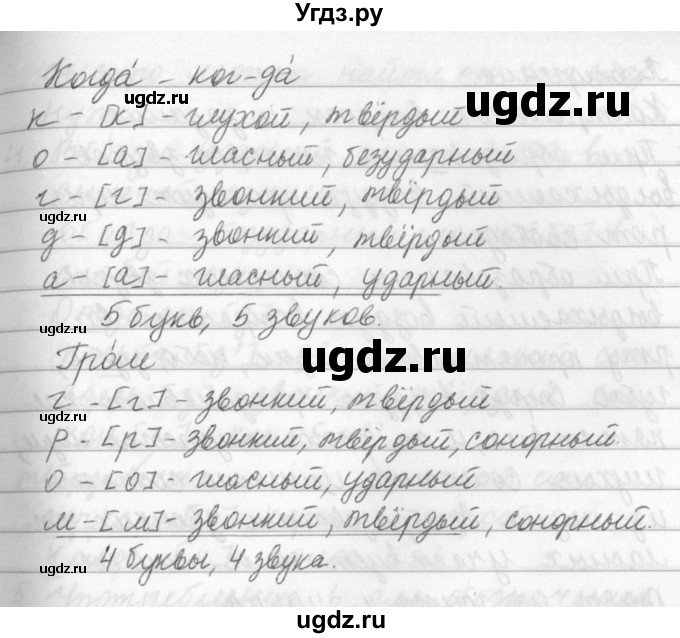 Угдз.ру
Когда́ – ког-да́
к – [к] – глухой, твёрдый
о – [а] – гласный, безударный
г – [г] – звонкий, твёрдый
д – [д] – звонкий, твёрдый
а – [а] – гласный, ударный.
5 букв, 5 звуков.
Гро́м
г – [г] – звонкий, твёрдый
р – [р] – звонкий, твёрдый, сонорный.
о – [о] – гласный, ударный
м – [м] – звонкий, твёрдый, сонорный.
4 буквы, 4 звука.
ugdz.ru
ugdz.ru
ugdz.ru
ugdz.ru
ugdz.ru
ugdz.ru
ugdz.ru
ugdz.ru
ugdz.ru
ugdz.ru